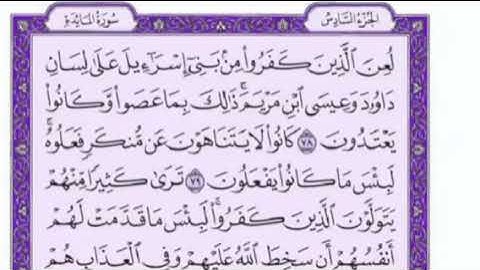 سُورَةُ المَائِدَةِ الجُزْءُ السَّادِسُ
لُعِنَ ٱلَّذِينَ كَفَرُوا۟ مِنۢ بَنِىٓ إِسْرَٰٓءِيلَ عَلَىٰ لِسَانِ
دَاوُۥدَ وَعِيسَى ٱبْنِ مَرْيَمَ ۚ ذَٰلِكَ بِمَا عَصَوا۟ وَّكَانُوا۟
يَعْتَدُونَ ٧٨ كَانُوا۟ لَا يَتَنَاهَوْنَ عَن مُّنكَرٍ فَعَلُوهُ ۚ
لَبِئْسَ مَا كَانُوا۟ يَفْعَلُونَ ٧٩ تَرَىٰ كَثِيرًا مِّنْهُمْ
يَتَوَلَّوْنَ ٱلَّذِينَ كَفَرُوا۟ ۚ لَبِئْسَ مَا قَدَّمَتْ لَهُمْ
أَنفُسُهُمْ أَن سَخِطَ ٱللَّهُ عَلَيْهِمْ وَفِى ٱلْعَذَابِ هُمْ